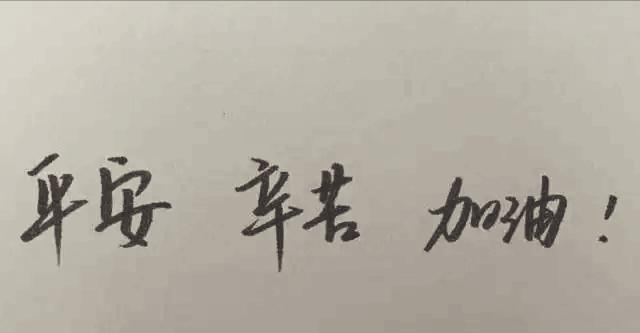 平安 辛苦 加油！